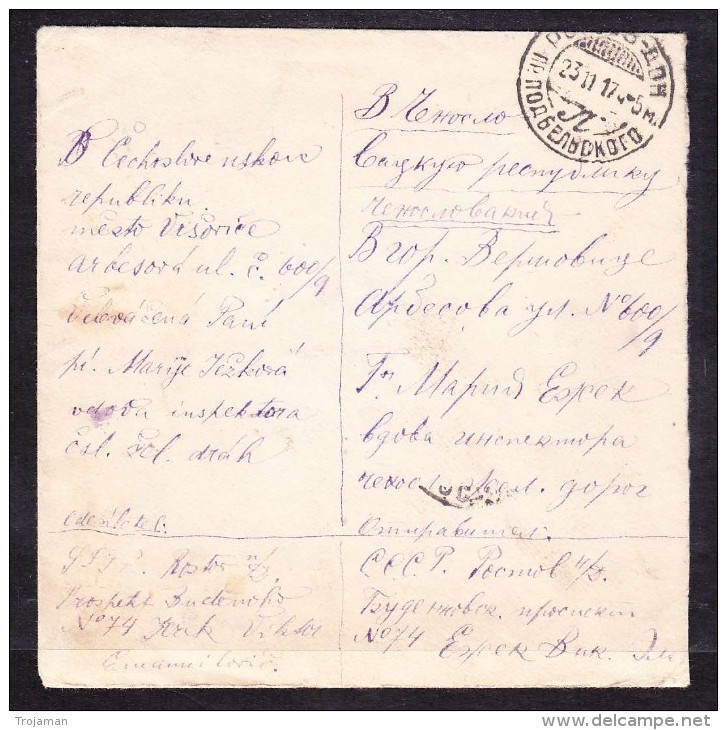 РОСТОВ-ДОН
23 11 17
ПР. ПОДБЕЛЬСКОГО
В Čechoslovenskou
republiku
město Vršovice
Arbesová ul. č. 600/9
Paní
pí. Marije Ježková
vdova inspektora
čsl. žel. dráh
odesílatel:
Rostov n/D
Prospekt Budenovsko
No 74 Viktor
В Чехосло
вацкую республику
Чехословакия
В гор. Вершовице
Арбесова ул. No 600/9
Гр Мария Ежек
вдова инспектора
чехосл. жел. дорог
Отправитель:
СССР. Ростов н/Д.
Буденновск. проспект
No 74 Ежек Вик.
Trojaman
www.delcampe.net